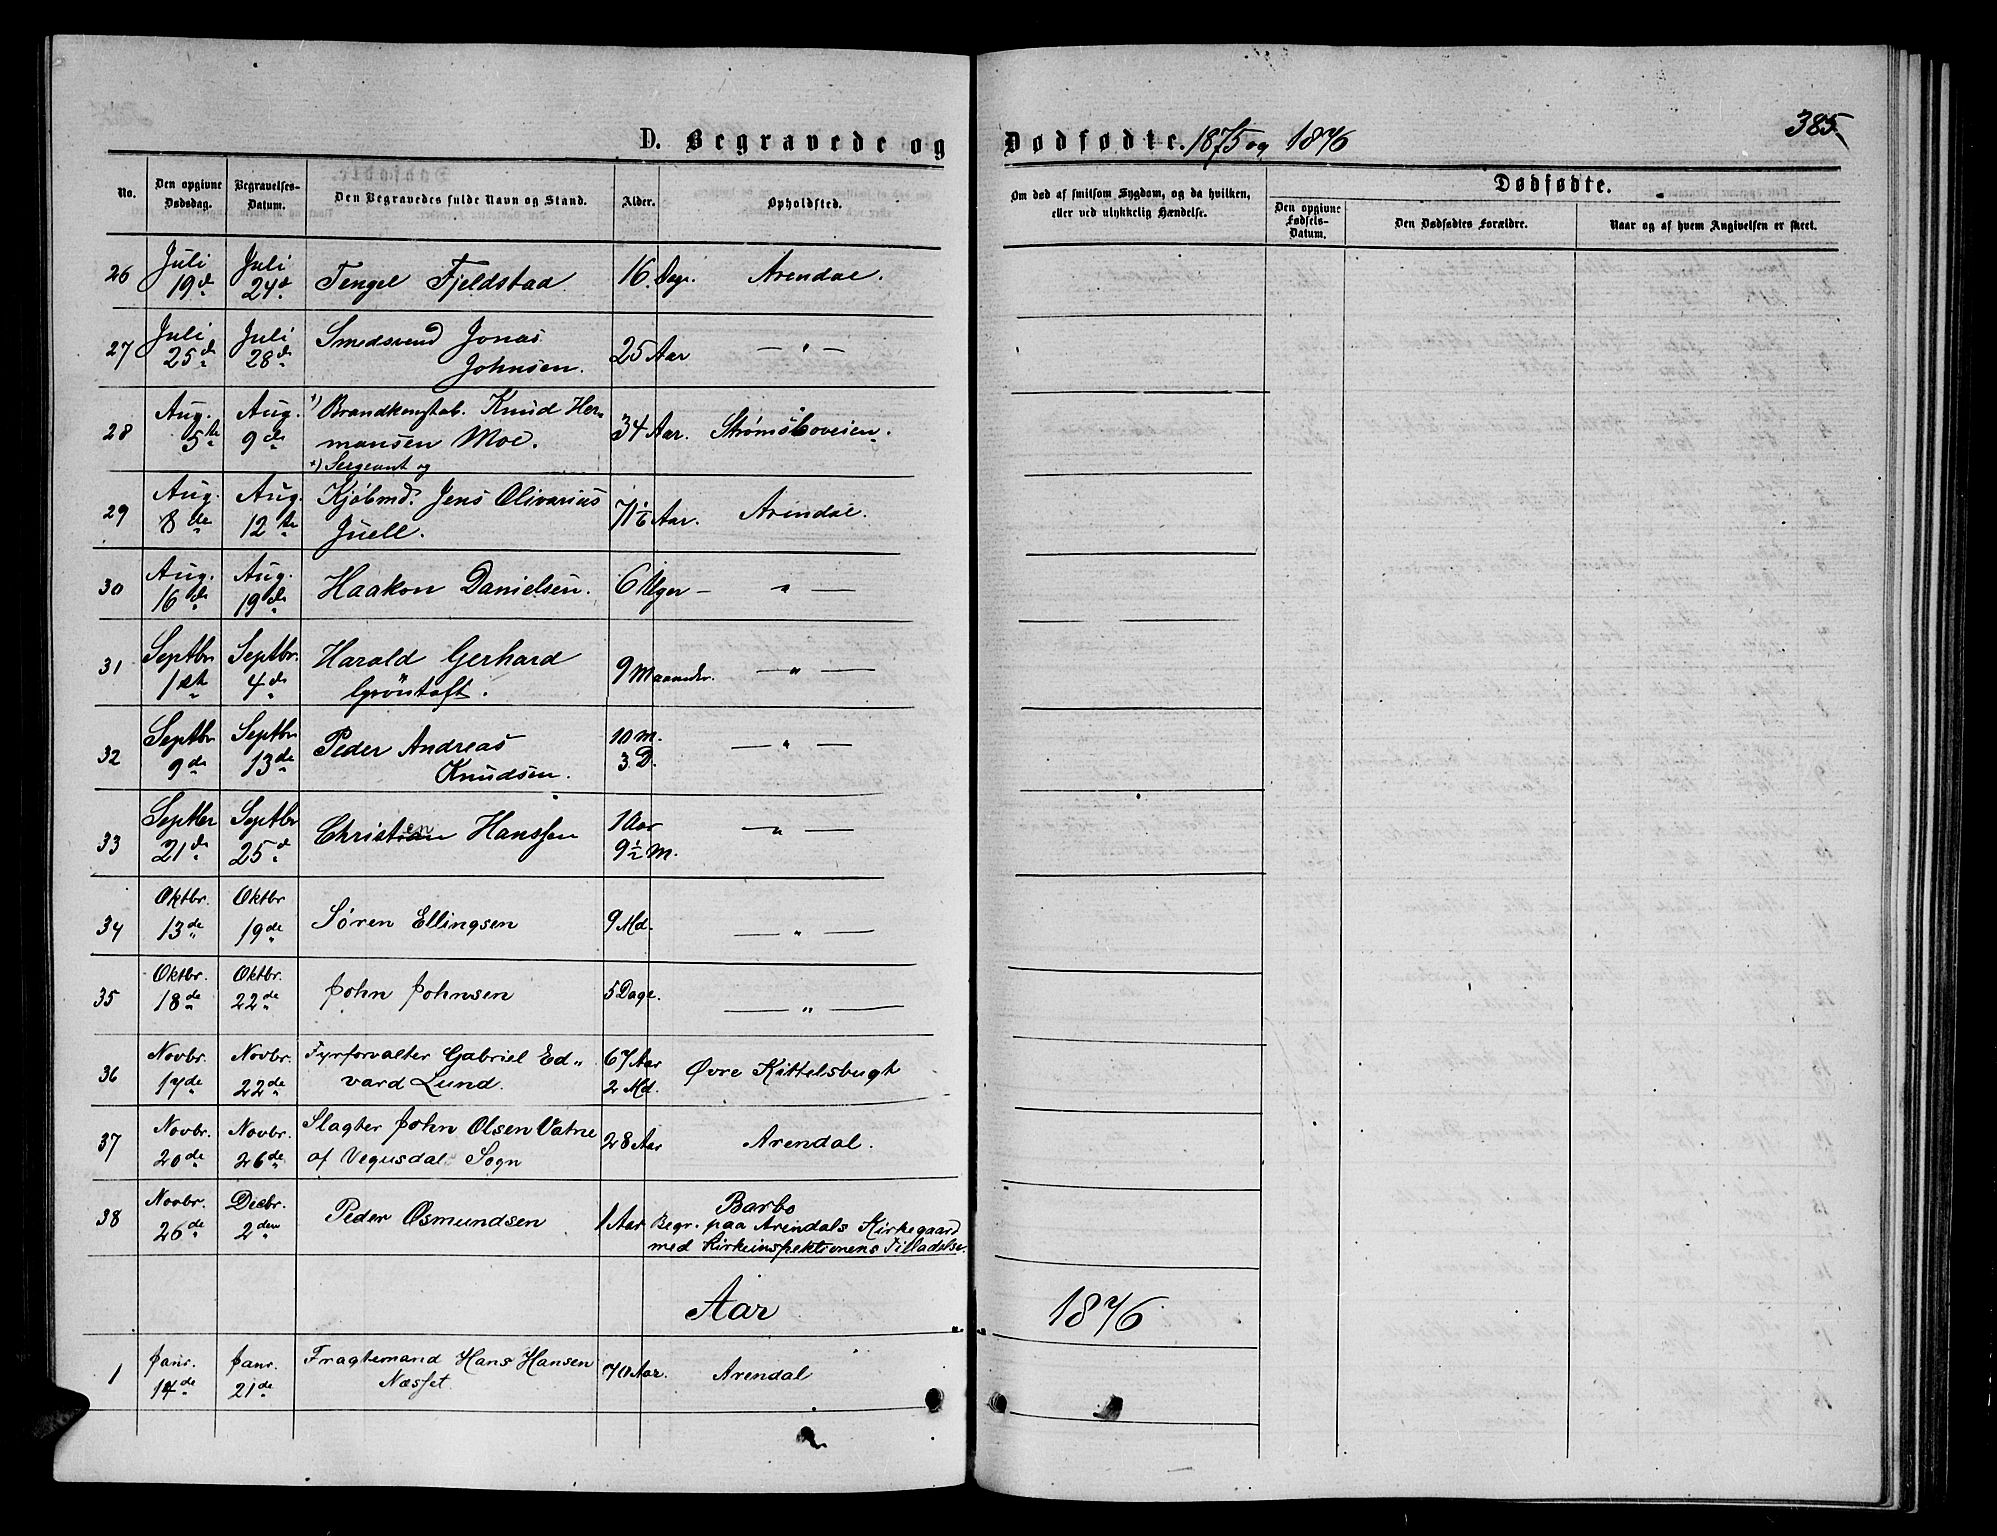 385.
D. Begravede og Dødfødte. 1875 og 1876
No.
Den opgivne Dødsdag.
Begravelses-Datum.
Den Begravedes fulde Navn og Stand.
Alder.
Opholdsted.
Om død af smitsom Sygdom, og da hvilken,
eller ved ulykkelig Hændelse.
Dødfødte.
Den opgivne Fødsels-Datum.
Den Dødfødtes Forældre.
Naar og af hvem Angivelsen er skeet.
26 Juli 19de Juli 24de Tengel Fjeldstad 16 Dage. Arendal.
27 Juli 25de Juli 28de Smedsvend Jonas
Johnsen. 25 Aar — " —
28 Aug. 5te Aug. 9de *) Brandkonstab. Knud Her-
mansen Moe. 34 Aar. Strømsboveien.
*) Sergeant og
29 Aug. 8de Aug. 12te Kjøbmd. Jens Olivarius
Juell. 71 1/6 Aar. Arendal.
30 Aug. 16de Aug. 19de Haakon Danielsen. 6 Uger — " —
31 Septbr 1ste Septbr. 4de Harald Gerhard
Gröntoft. 9 Maaneder. — " —
32 Septbr 9de Septbr 13de Peder Andreas
Knudsen. 10 M. 3 D. — " —
33 Septbr 21de Septbr 25de Christen Hanssen 1 Aar 9 1/2 M. — " —
34 Oktbr. 13de Oktbr 19de Søren Ellingsen 9 Md. — " —
35 Oktbr. 18de Oktbr. 22de John Johnsen 5 Dage. — " —
36 Novbr. 17de Novbr. 22de Fyrforvalter Gabriel Ed-
vard Lund. 67 Aar 2 Md. Øvre Kittelsbugt
37 Novbr. 20de Novbr. 26de Slagter John Olsen Vatne
af Vegusdal Sogn 28 Aar Arendal.
38 Novbr. 26de Decbr. 2den Peder Osmundsen 1 Aar Barbo
Begr. paa Arendals Kirkegaard
med Kirkeinspektionens Tilladelse.
Aar 1876
1 Janr. 14de Janr. 21de Fragtemand Hans Hansen
Næsset. 70 Aar. Arendal